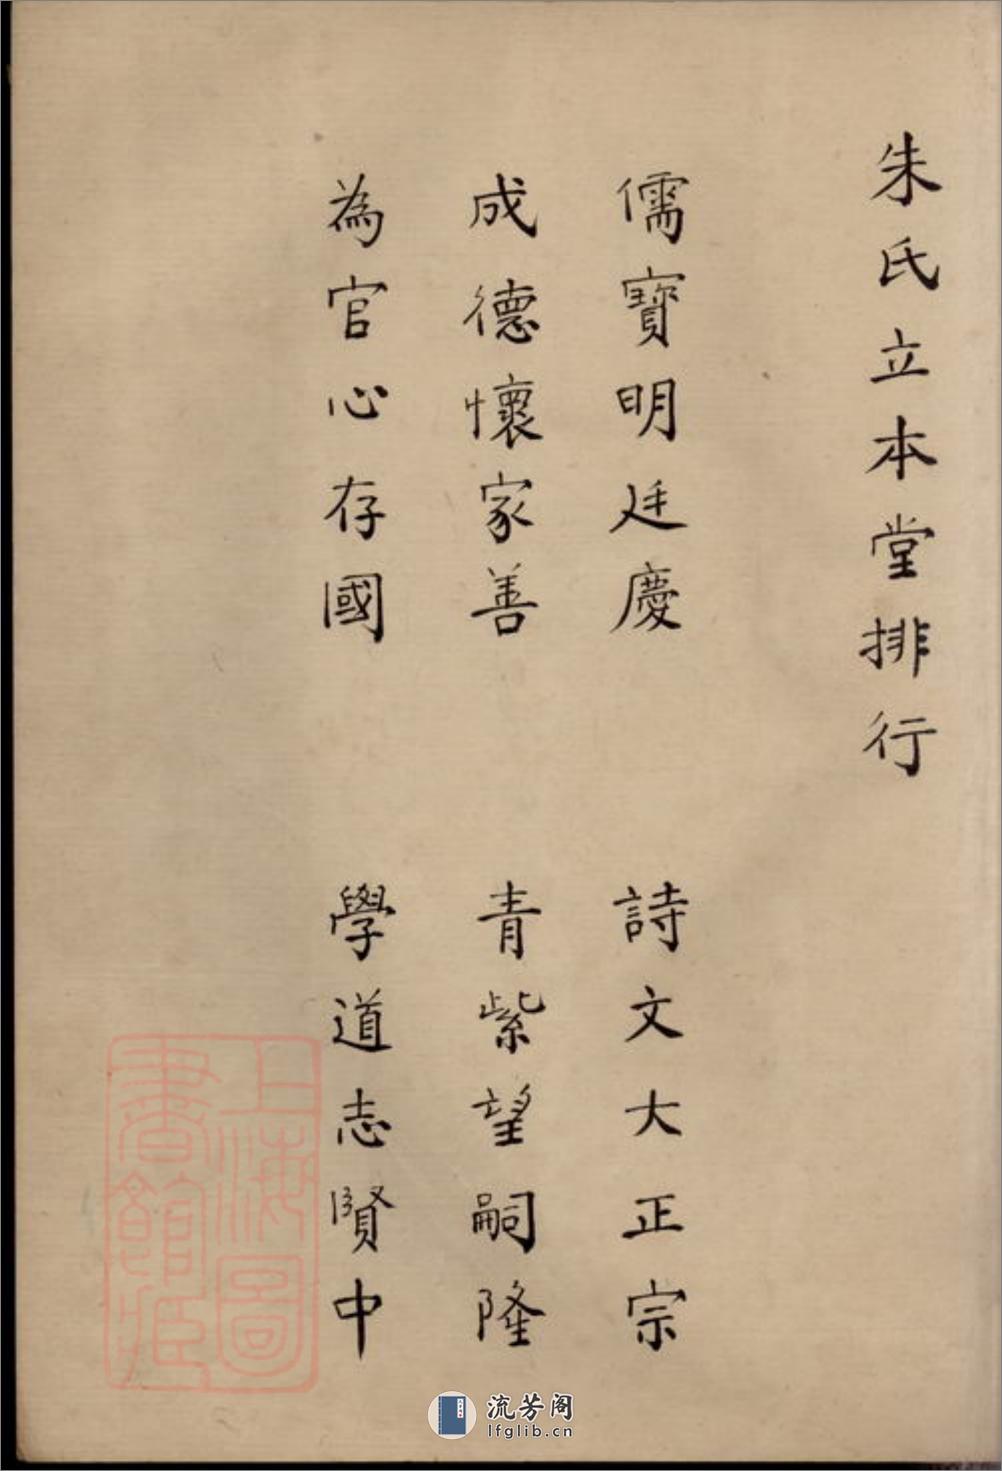 朱氏立本堂排行
儒寶明廷慶
詩文大正宗
成德懷家善
青紫望嗣隆
為官心存國
學道志賢中
上海圖
書館藏
流芳阁
lfglib.cn